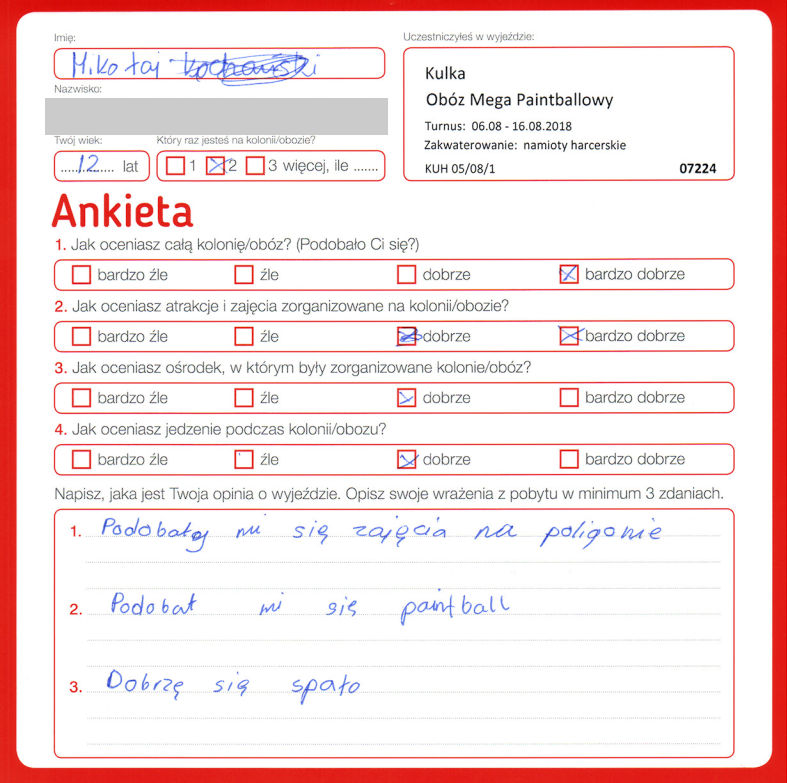 Imię:
Mikołaj
Nazwisko:
Twój wiek:
12 lat
Który raz jesteś na kolonii/obozie?
1 2 3 więcej, ile .......
Uczestniczyłeś w wyjeździe:
Kulka
Obóz Mega Paintballowy
Turnus: 06.08 - 16.08.2018
Zakwaterowanie: namioty harcerskie
KUH 05/08/1 07224
Ankieta
1. Jak oceniasz całą kolonię/obóz? (Podobało Ci się?)
bardzo źle źle dobrze bardzo dobrze
2. Jak oceniasz atrakcje i zajęcia zorganizowane na kolonii/obozie?
bardzo źle źle dobrze bardzo dobrze
3. Jak oceniasz ośrodek, w którym były zorganizowane kolonie/obóz?
bardzo źle źle dobrze bardzo dobrze
4. Jak oceniasz jedzenie podczas kolonii/obozu?
bardzo źle źle dobrze bardzo dobrze
Napisz, jaka jest Twoja opinia o wyjeździe. Opisz swoje wrażenia z pobytu w minimum 3 zdaniach.
1. Podobały mi się zajęcia na poligonie
2. Podobał mi się paintball
3. Dobrzę się spało